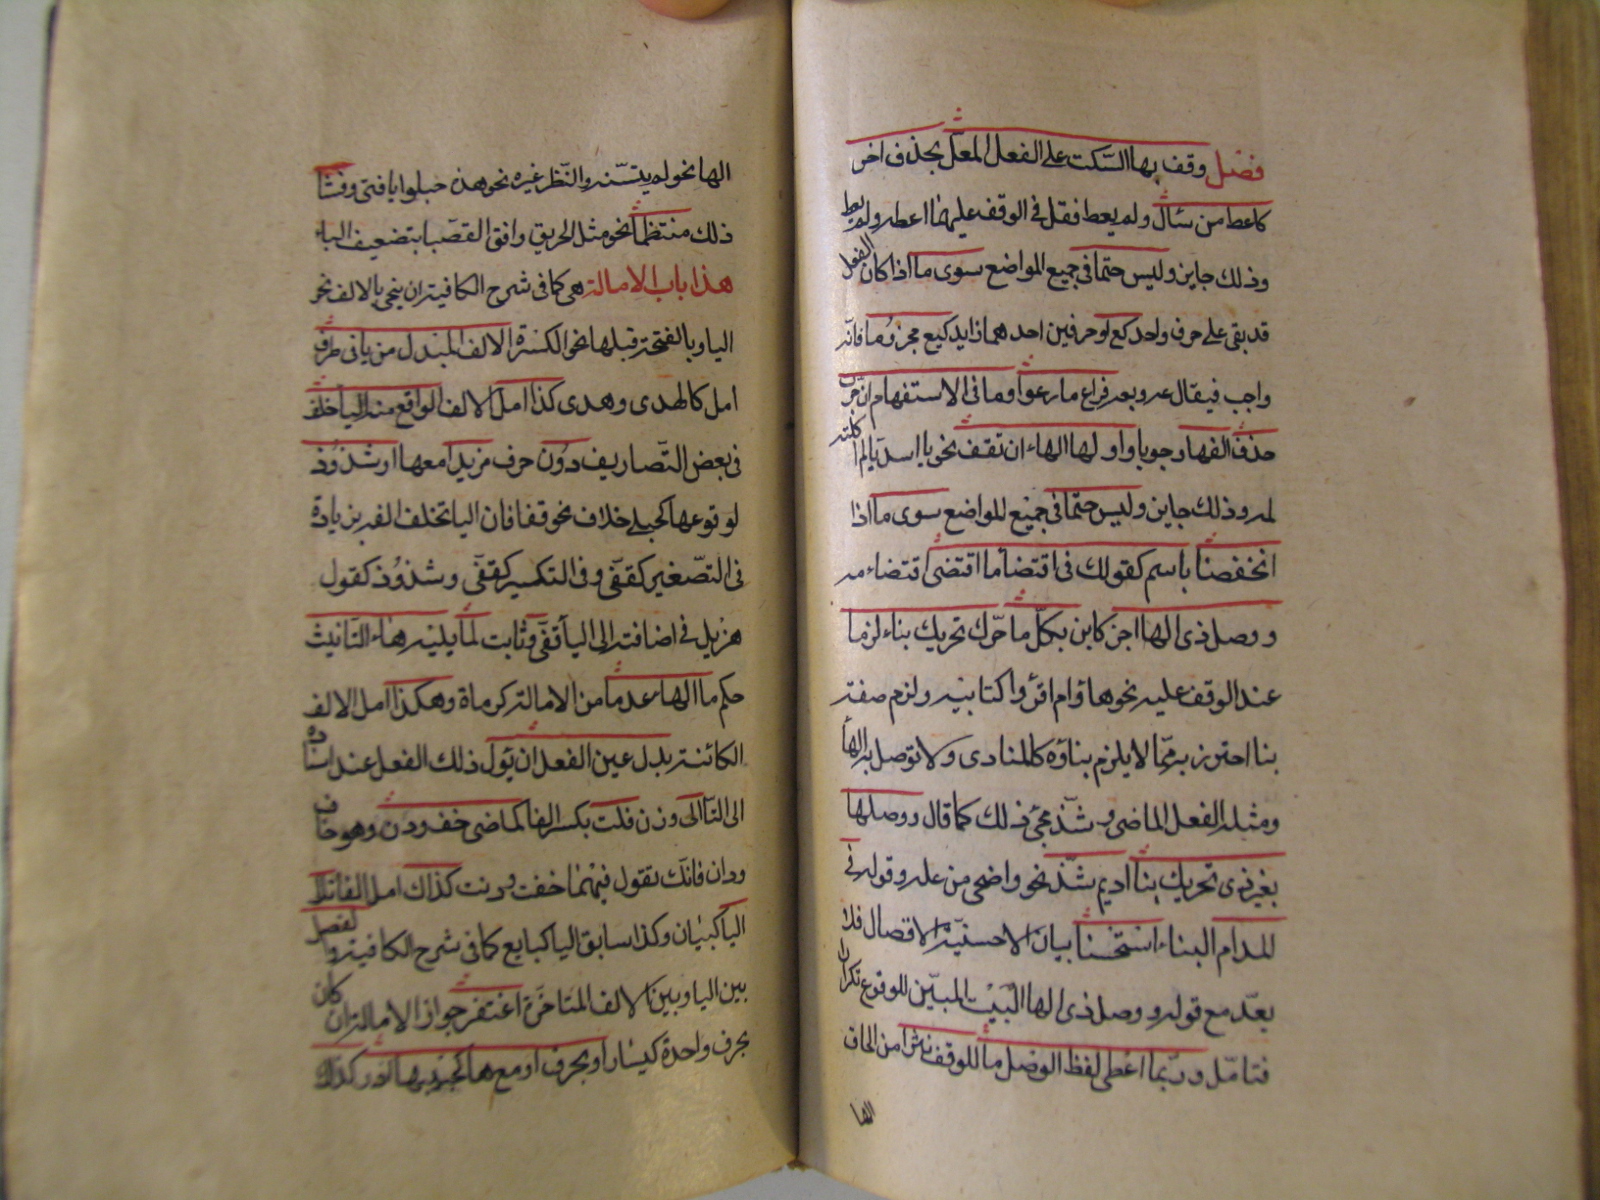 فصل وقف بها السكت على الفعل المعل بحذف اخر
كاعط من سأل ولم يعط فقل في الوقف عليهما اعطه ولم يعطه
وذلك جايز وليس حتما في جميع المواضع سوى ما اذا كان الفعل
قد بقى على حرف واحد كع او حرفين احدهما زايد كيع مجزوما فانه
واجب فيقال عه ويعه فراع ما رعوا وما في الاستفهام ان جرت
حذف الفها وجوبا واولها الهاء ان تقف نحو يا اسديا لم اكلته
لمه وذلك جايز وليس حتما في جميع المواضع سوى ما اذا
انخفضنا باسم كقولك في اقتضا ما اقتضى اقتضاء مه
ووصل ذى الها اجز كاين بكل ما حرك تحريك بناء لزما
عند الوقف عليه نحو هاؤم اقرؤا كتابيه ولزم صفة
بنا احترز به مما لا يلزم بناؤه كالمنادى ولا توصل به الها
ومثله الفعل الماضي وشذ مجئ ذلك كما قال ووصلها
بغير ذى تحريك بنا اديم شذ نحو واضحى من عله وقوله في
المدام البناء استحسنا بيان لاحسنية الاتصال فلا
يعد مع قوله ووصل ذى الها البيت المبين للوقوع تكرارا
فتامل وربما اعطى لفظ الوصل ما للوقف نثرا من الحاق
الها
الها نحو لم يتسنه والنظر غيره نحو هذه حبلوا يا فتى وفشا
ذلك منتظما نحو مثل الحريق وافق القصبا بتضعيف البا
هذا باب الامالة هى كما في شرح الكافية ان ينحى بالالف نحو
اليا وبالفتحة قبلها نحو الكسرة الالف المبدل من يا في طرف
امل كالهدى وهدى كذا امل الالف الواقع منه اليا خلف
في بعض التصاريف دون حرف مزيد معها او شذوذ
لوقوعها كحبلى خلاف نحو قفا فان اليا تخلف الفه بزيادة
في التصغير كقفى وفي التكسير كقفى وشذوذ كقول
هزيل في اضافته الى اليا قفى وثابت لما يليه هاء التانيث
حكم ما الها عدما من الامالة كرماة وهكذا امل الالف
الكائنة بدل عين الفعل ان يؤل ذلك الفعل عند اسناده
الى التا الى وزن فلت بكسر الفا كماضى خف ودن وهو خاف
ودان فانك تقول فيهما خفت ودنت كذاك امل الفا تلا
اليا كبيان وكذا سابق اليا كبايع كما في شرح الكافية والفصل
بين اليا وبين الالف المتاخرة اغتفر جواز الامالة ان كان
بحرف واحدة كيسار او بحرف او مع ها كجيبها ادر كذاك